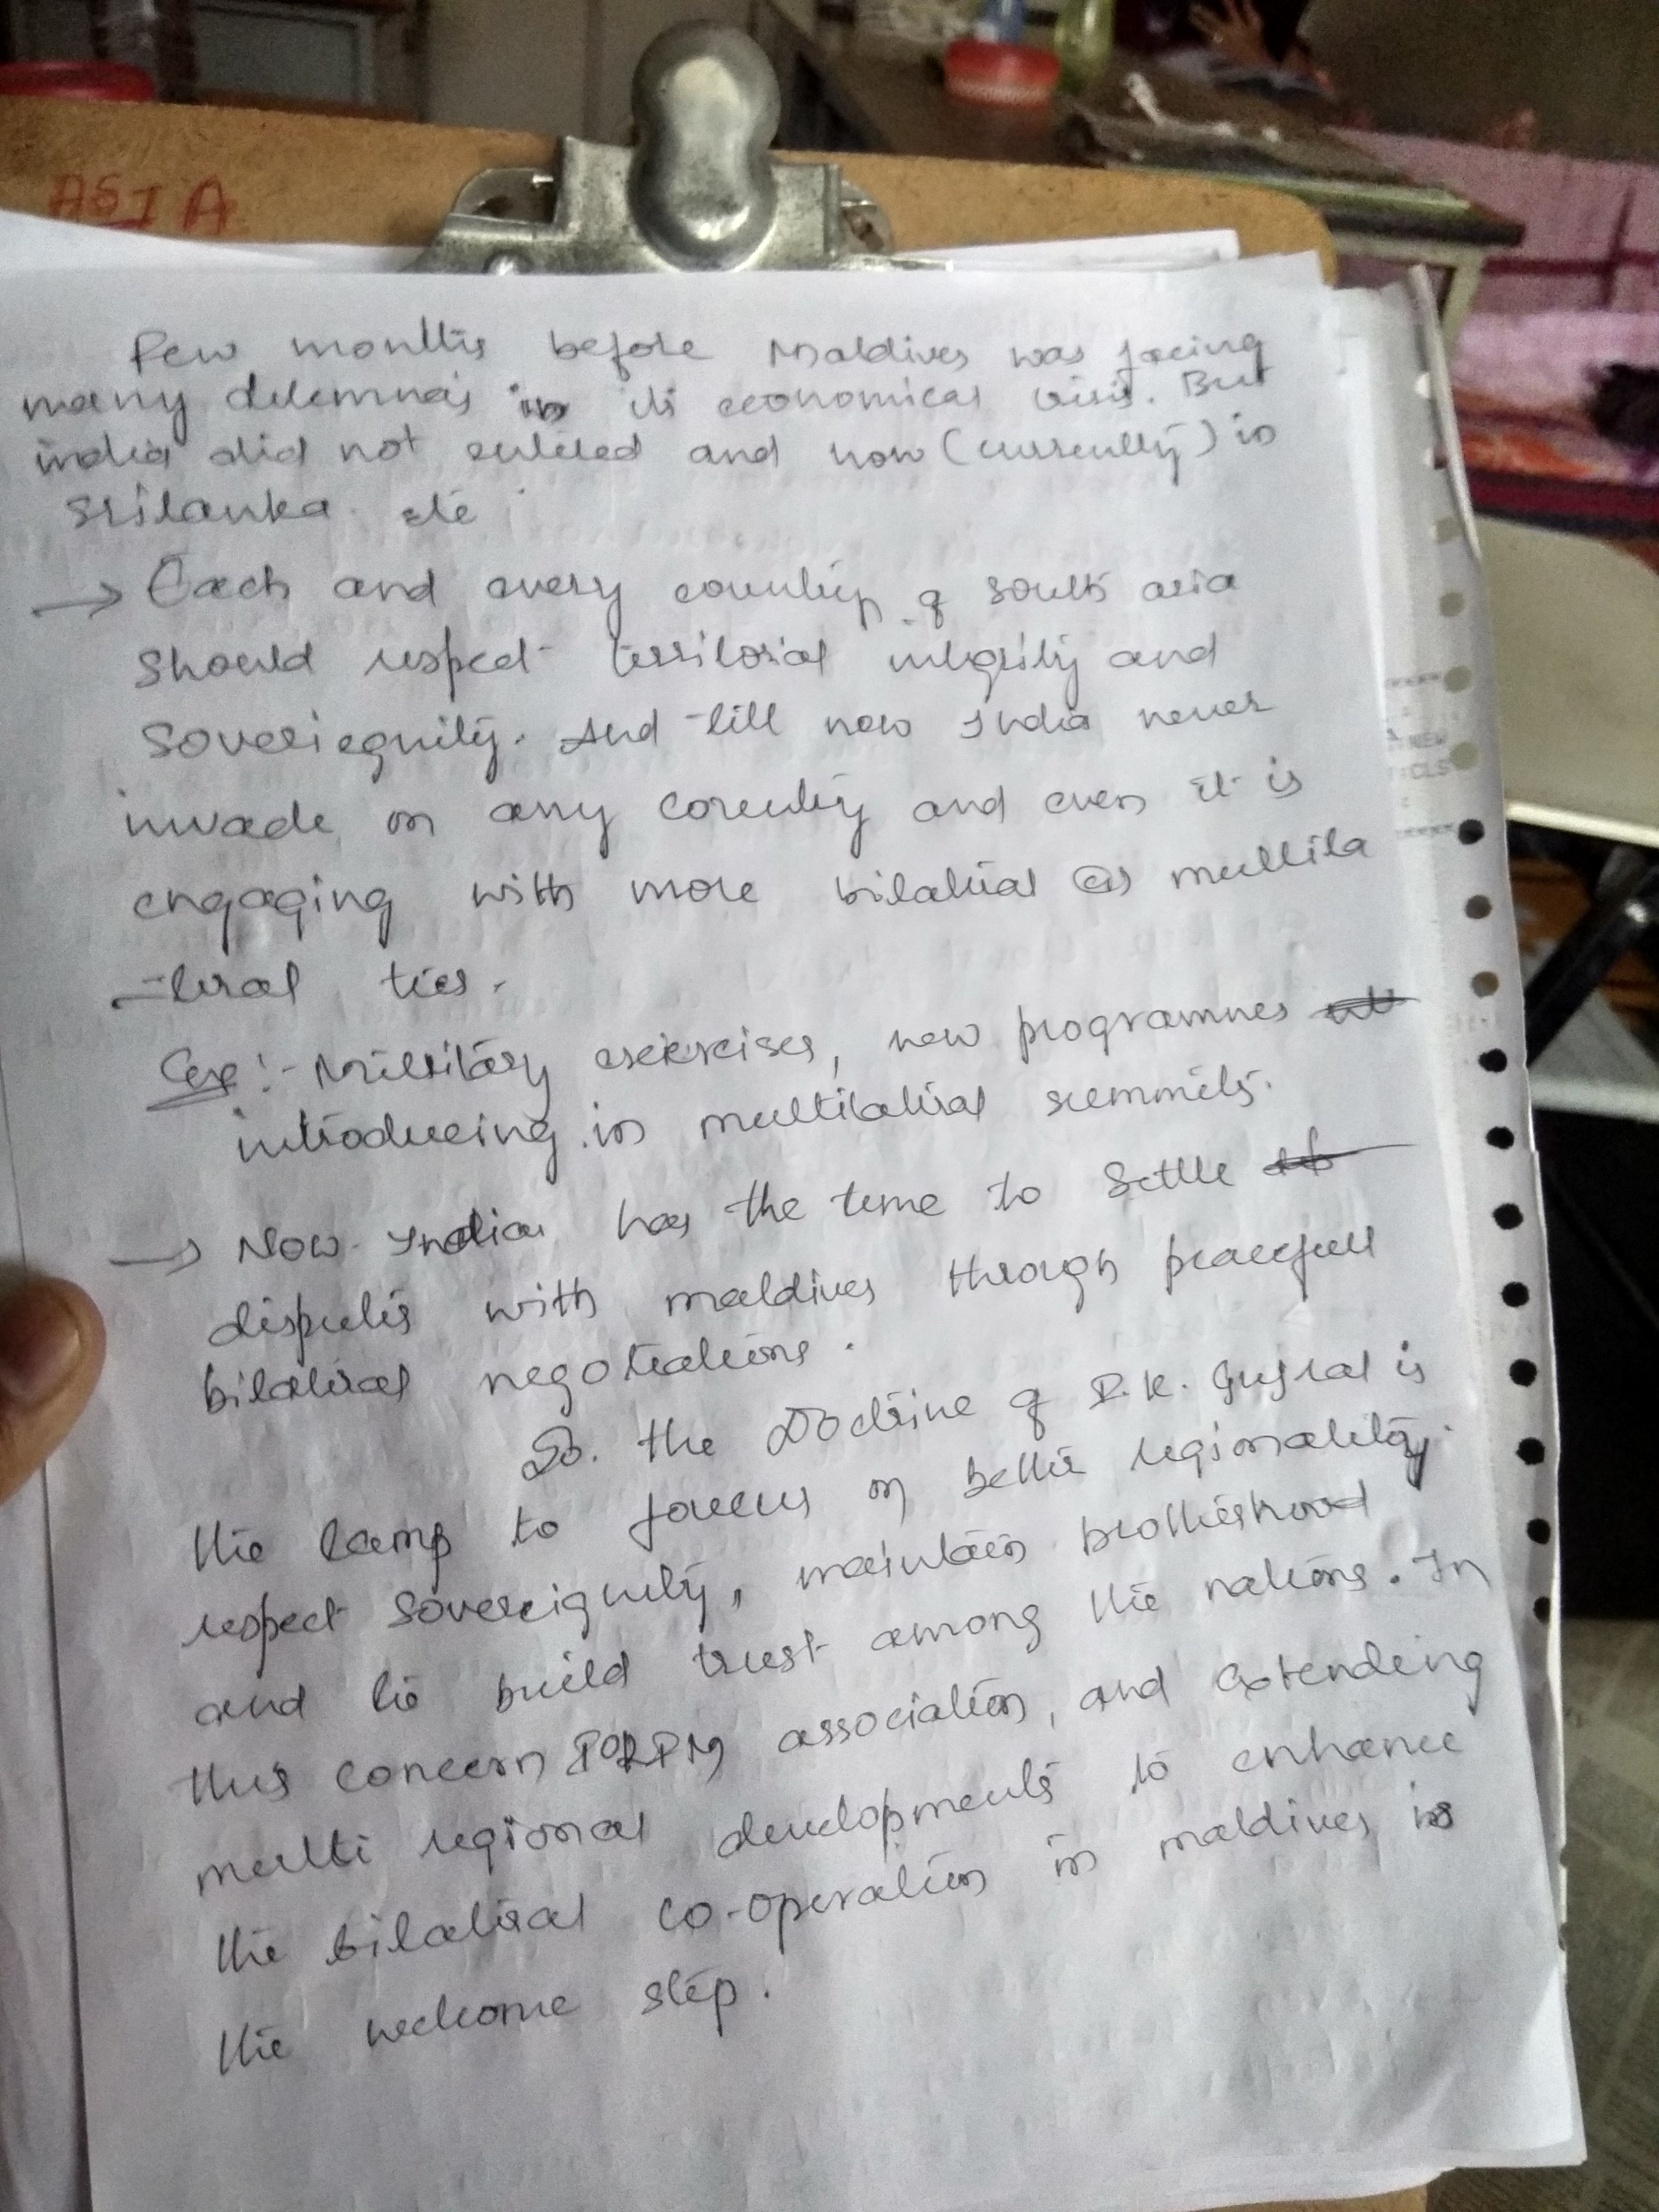 ASIA
Few months before Maldives was facing
many dilemma's in its economical crisis. But
india did not entered and now (currently) in
Srilanka. etc
→ Each and every country of south asia
should respect territorial integrity and
soveriegnity. And till now India never
invade on any country and even it is
engaging with more bilateral as multila
-teral ties.
Eg:- Military exercises, new programmes
introducing in multilateral summits.
→ Now India has the time to settle
disputes with maldives through peacefull
bilateral negotiations.
So. the Doctrine of I.K. Gujral is
the lamp to foucus on better regionality
respect sovereignity, maintain brotherhood
and to build trust among the nations. In
this concern association, and extending
multi regional developments to enhance
the bilateral co-operation in maldives is
the welcome step.
NEW
CLS